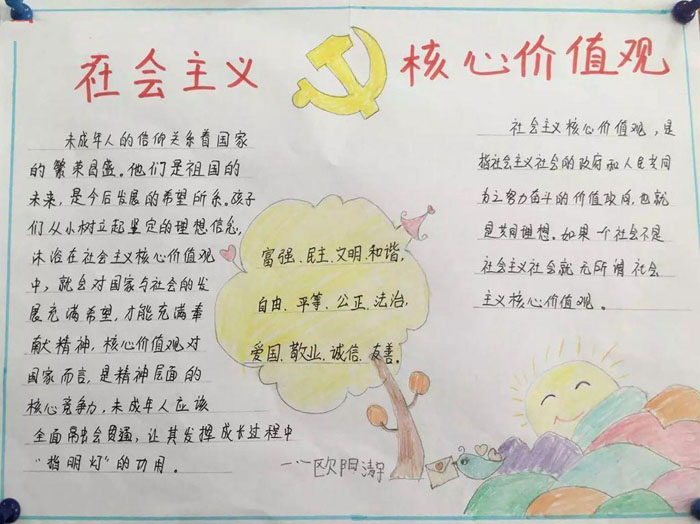 在会主义 核心价值观
未成年人的信仰关系着国家
的繁荣昌盛。他们是祖国的
未来,是今后发展的希望所系。孩子
们从小树立起坚定的理想信念,
沐浴在社会主义核心价值观
中,就会对国家与社会的发
展充满希望,才能充满奉
献精神,核心价值观对
国家而言,是精神层面的
核心竞争力,未成年人应该
全面融会贯通,让其发挥成长过程中
“指明灯”的功用。
富强、民主、文明、和谐,
自由、平等、公正、法治,
爱国、敬业、诚信、友善。
社会主义核心价值观,是
指社会主义社会的政府和人民共同
为之努力奋斗的价值取向,也就
是共同理想。如果一个社会不是
社会主义社会就无所谓社会
主义核心价值观。
欧阳